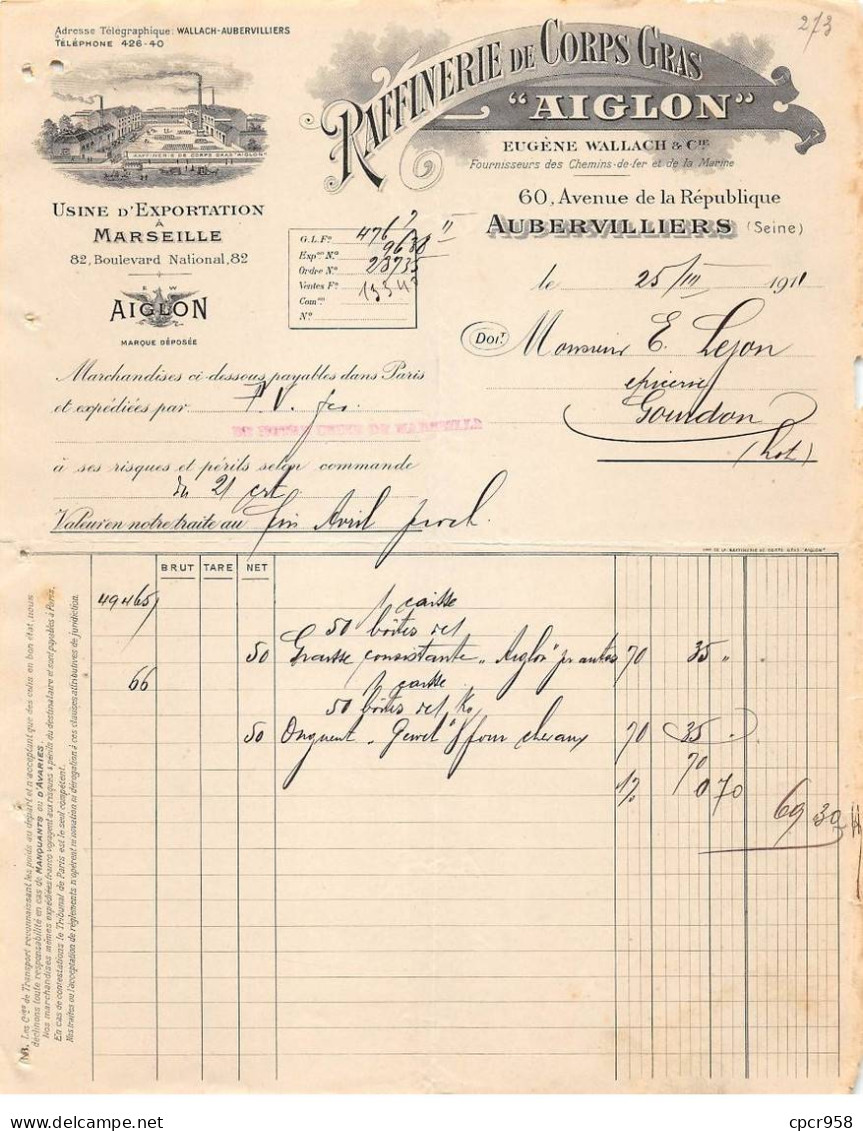 2/3
Adresse Télégraphique: WALLACH-AUBERVILLIERS
TÉLÉPHONE 426-40
RAFFINERIE DE CORPS GRAS
"AIGLON"
EUGÈNE WALLACH & CIE
Fournisseurs des Chemins-de-fer et de la Marine
60, Avenue de la République
AUBERVILLIERS (Seine)
RAFFINERIE DE CORPS GRAS "AIGLON"
USINE D'EXPORTATION
À
MARSEILLE
82, Boulevard National, 82
E W
AIGLON
MARQUE DÉPOSÉE
G.L.Fo. 476
Expon No. 9638
Ordre No. 28735
Ventes Fo. 13543
Comon
No.
le 25/III 1911
DOIT Monsieur E. Lejon
épicerie
Gourdon
(Lot)
Marchandises ci-dessous payables dans Paris
et expédiées par P. V.
DE NOTRE USINE DE MARSEILLE
à ses risques et périls selon commande
du 21 crt
Valeur en notre traite au fin Avril proch.
IMP. DE LA RAFFINERIE DE CORPS GRAS "AIGLON"
BRUT TARE NET
49465 1 caisse
50 boîtes
50 Graisse consistante "Aiglon" 70 35 "
66 1 caisse
50 boîtes Ko
50 Onguent pour chevaux 70 35
70
1% 0 70
69 30
NB. Les Cies de Transport reconnaissant les poids au départ et n'acceptant que des colis en bon état, nous
déclinons toute responsabilité en cas de MANQUANTS ou D'AVARIES.
Nos marchandises mêmes expédiées franco voyagent aux risques & périls du destinataire et sont payables à Paris.
En cas de contestations le Tribunal de Paris est le seul compétent.
Nos traites ou l'acceptation de règlements n'opèrent ni novation ni dérogation à ces clauses attributives de juridiction.
cpcr958